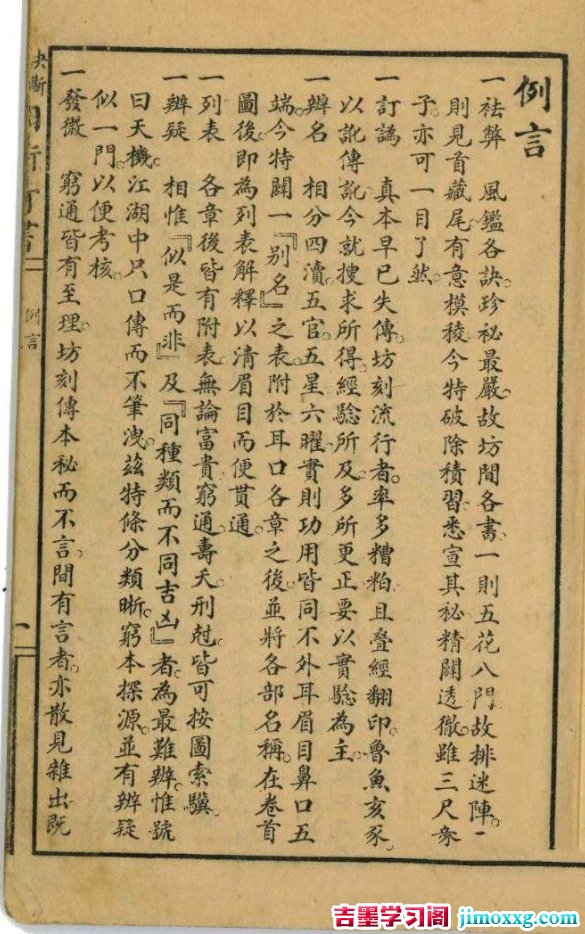 例言
一祛弊　風鑑各訣珍祕最嚴。故坊間各書。一則五花八門。故排迷陣。一
則見首藏尾。有意模稜。今特破除積習。悉宣其秘。精闢透徹。雖三尺豪
子亦可一目了然。
一訂譌　真本早已失傳。坊刻流行者。率多糟粕。且叠經翻印。魯魚亥豕。
以訛傳訛。今就搜求所得。經騐所及。多所更正。要以實騐為主。
一辨名　相分四瀆。五官。五星。六曜。實則功用皆同。不外耳眉目鼻口五
端。今特闢一『別名』之表。附於耳口各章之後。並將各部名稱。在卷首
圖後即為列表解釋。以清眉目而便貫通。
一列表　各章後皆有附表。無論富貴窮通。壽夭刑尅。皆可按圖索驥。
一辨疑　相惟『似是而非』及『同種類而不同吉凶』者。為最難辨。惟號
曰天機。江湖中只口傳而不筆洩。茲特條分類晰。窮本探源。並有辨疑
似一門。以便考核。
一發微　窮通皆有至理。坊刻傳本秘而不言。間有言者。亦散見雜出。既
決斷
例言
一
吉墨学习阁
jimoxxg.com